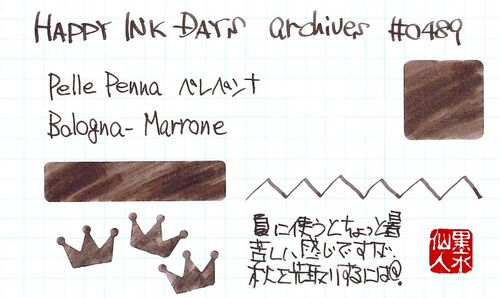 HAPPY INK DAYS archives #0489
Pelle Penna ペレペンナ
Bologna-Marrone
夏に使うとちょっと暑
苦しい感じですが、
秋を先取りするには◎。
墨水
仙人